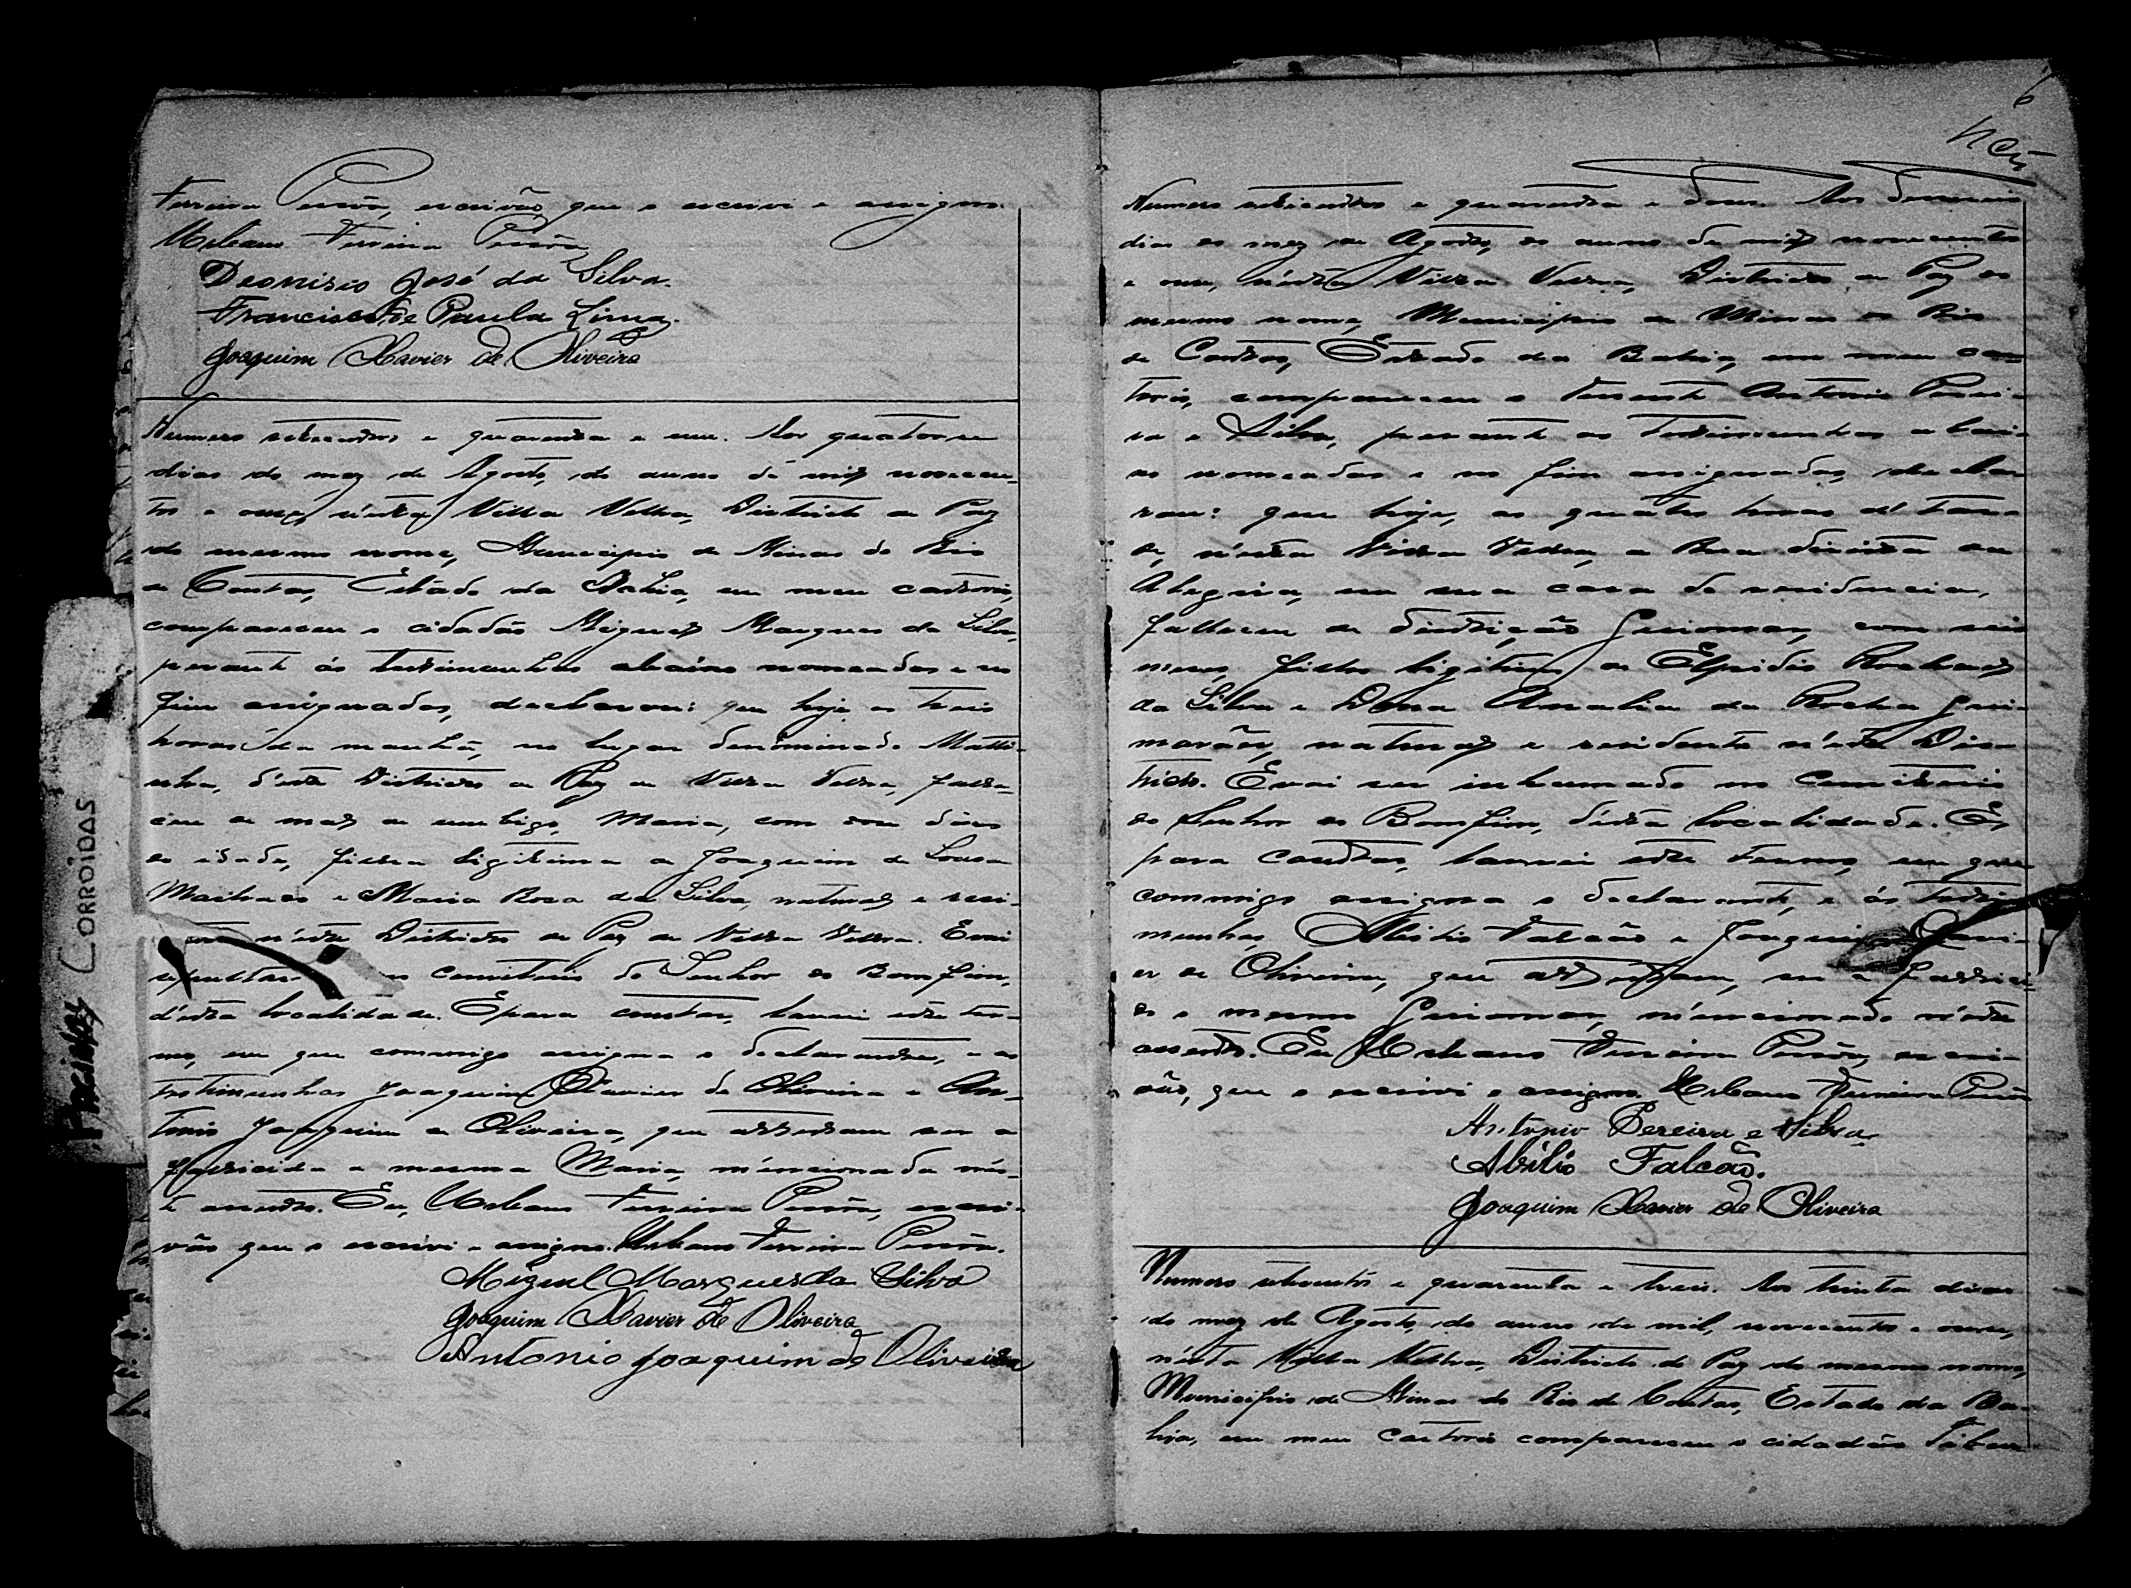 Ferreira Pessôa, escrivão que o escrevi e assigno.
Urbano Ferreira Pessôa
Deonisio José da Silva.
Francisco de Paula Lima.
Joaquim Xavier de Oliveira
Numero setecentos e quarenta e um. Aos quatorse
dias do mez de Agosto, do anno de mil novecen-
tos e onze, n'esta Villa Velha, Districto de Paz
do mesmo nome, Municipio de Minas do Rio
de Contas, Estado da Bahia, em meu cartorio,
compareceu o cidadão Miguel Marques da Silva,
perante ás testimunhas abaixo nomeadas e no
fim asignadas, declarou: que hoje as treis
horas da manhã, no lugar denominado Matti-
nha, d'este Districto de Paz de Villa Velha, falle-
ceu de mal de umbigo, Maria, com dias
de idade, filha ligitima de Joaquim de Sousa
e Maria Rosa da Silva, naturaes e resi-
n'este Districto de Paz de Villa Velha. E vai
sepultar no Cemiterio do Senhor do Bomfim,
d'esta localidade. E para constar, lavrei este ter-
mo, em que commigo asigna o declarante, e as
testimunhas Joaquim Xavier de Oliveira e An-
tonio Joaquim de Oliveira, que attestam ser a
fallecida a mesma Maria, mencionada nes-
te assento. Eu, Urbano Ferreira Pessôa, escri-
vão que o escrevi e assigno. Urbano Ferreira Pessôa.
Miguel Marques da Silva
Joaquim Xavier de Oliveira
Antonio Joaquim de Oliveira
6
Numero setecentos e quarenta e dous. Aos
dias do mez de Agosto, do anno de mil novecentos
e onze, n'esta Villa Velha, Districto de Paz do
mesmo nome, Municipio de Minas do Rio
de Contas, Estado da Bahia, em meu car-
torio, compareceu o Tenente Antonio Perei-
ra e Silva, perante as testimunhas abai-
xo nomeadas e no fim asignadas, decla-
rou: que hoje, as quatro horas da tar-
de, n'esta Villa Velha, a Rua direita da
Alegria, em sua casa de residencia,
falleceu de dentição Guiomar, com seis
meses, filho ligitimo de Elpidio
da Silva e Dona Analia da Rocha Gui-
marães, naturaes e residentes n'este Dis-
tricto. E vai ser inhumado no Cemiterio
do Senhor do Bomfim, d'esta localidade. E,
para constar, lavrei este termo, em que
commigo asigna o declarante, e ás testi-
munhas, Abilio Falcão e Joaquim Xavi-
er de Oliveira, que attestam, ser o falleci-
do o mesmo Guiomar, mencionado n'este
assento. Eu Urbano Ferreira Pessôa, escri-
vão, que o escrevi e assigno. Urbano Ferreira Pessôa
Antonio Pereira e Silva.
Abilio Falcão.
Joaquim Xavier de Oliveira
Numero setecentos e quarenta e treis. Aos trinta dias
do mez de Agosto, do anno de mil, novecentos e onze,
n'esta Villa Velha, Districto de Paz do mesmo nome,
Municipio de Minas do Rio de Contas, Estado da Ba-
hia, em meu cartorio compareceu o cidadão
CORROIDAS